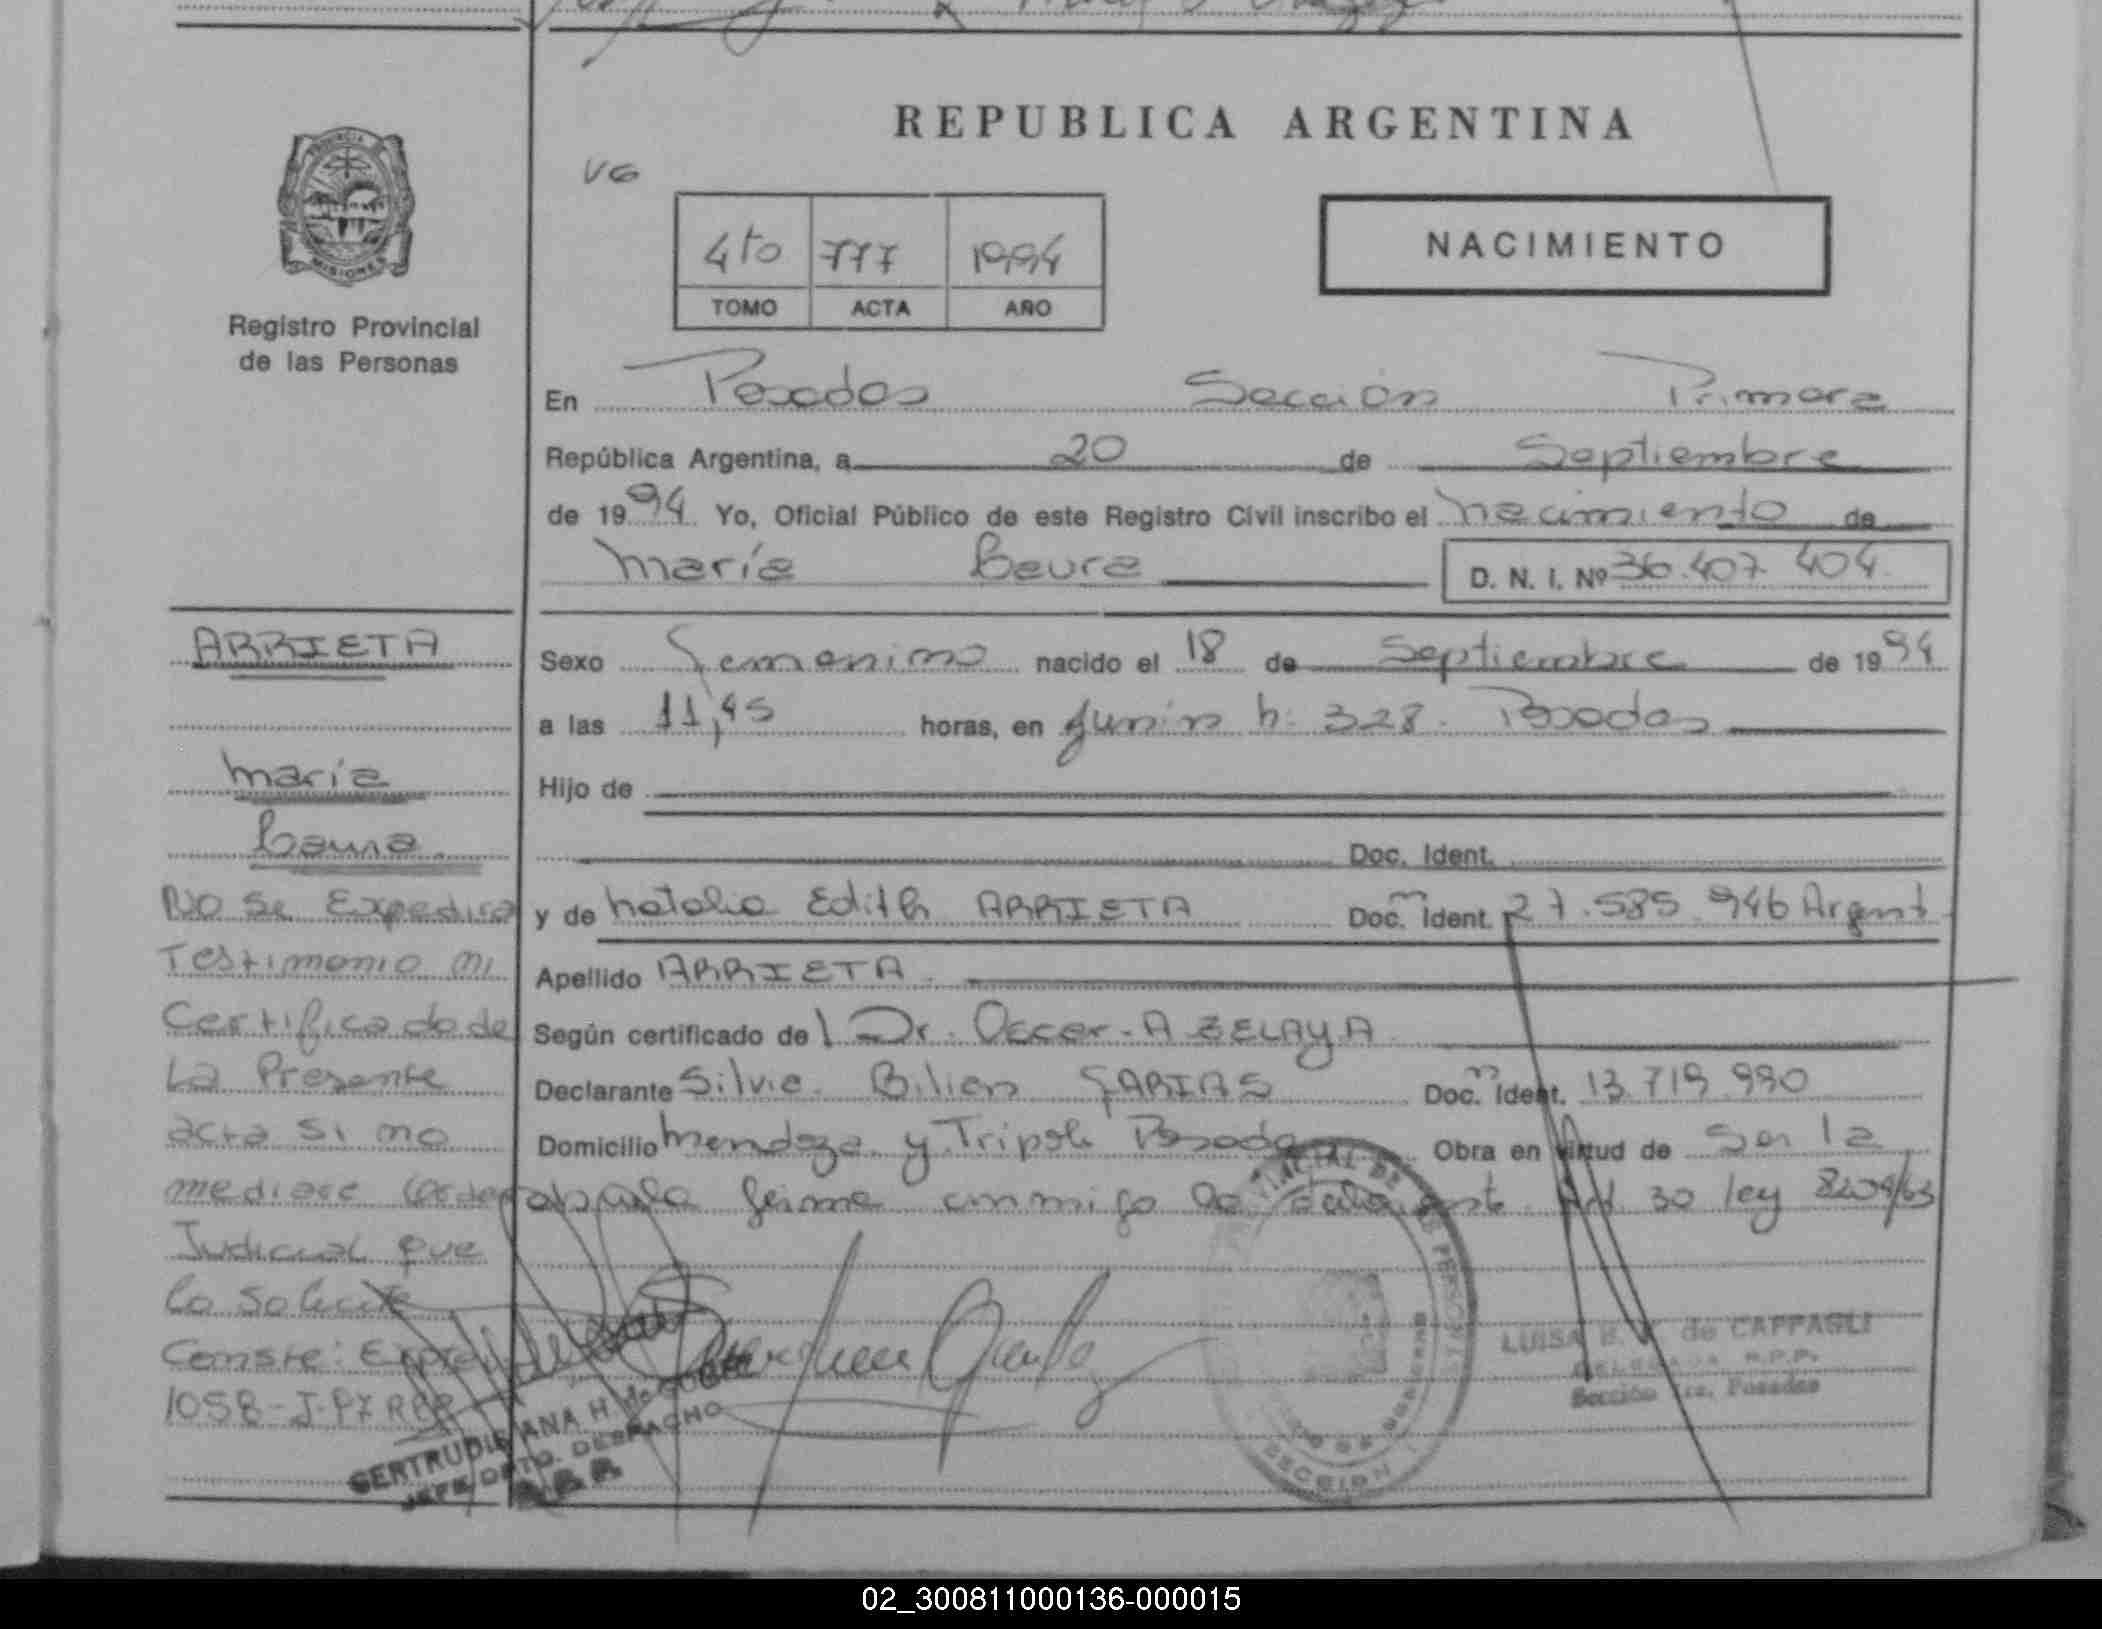 REPUBLICA ARGENTINA
VG
4to 777 1994
TOMO ACTA AÑO
NACIMIENTO
PROVINCIA
MISIONES
Registro Provincial
de las Personas
En Posadas Sección Primera
República Argentina, a 20 de Septiembre
de 1994 Yo, Oficial Público de este Registro Civil inscribo el nacimiento de
María Laura D. N. I. Nº 36.407.404
ARRIETA
María
Laura
Sexo Femenino nacido el 18 de Septiembre de 1994
a las 11,45 horas, en Junin n: 328. Posadas
Hijo de
Doc. Ident.
y de Natalia Edith ARRIETA Doc. Ident. 27.585.946 Argent
Apellido ARRIETA
Según certificado de Dr. Oscar A ZELAYA
Declarante Silvia Bilian FARIAS Doc. Ident. 13.719.990
Domicilio Mendoza y Tripoli Posadas Obra en virtud de Ser la
firma conmigo Art 30 ley 8204/63
No Se Expedira
Testimonio ni
Certificado de
La Presente
acta Si no
mediare Orden
Judicial que
lo Solicite
Conste: Expte
1058-J-P7
GERTRUDIS ANA H. de
JEFE DPTO. DESPACHO
R.P.P.
LUISA B. de CAPPAGLI
DELEGADA R.P.P.
Sección 1ra. Posadas
02_300811000136-000015